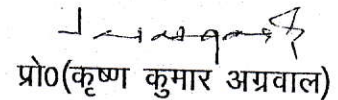 प्रो0(कृष्ण कुमार अग्रवाल)